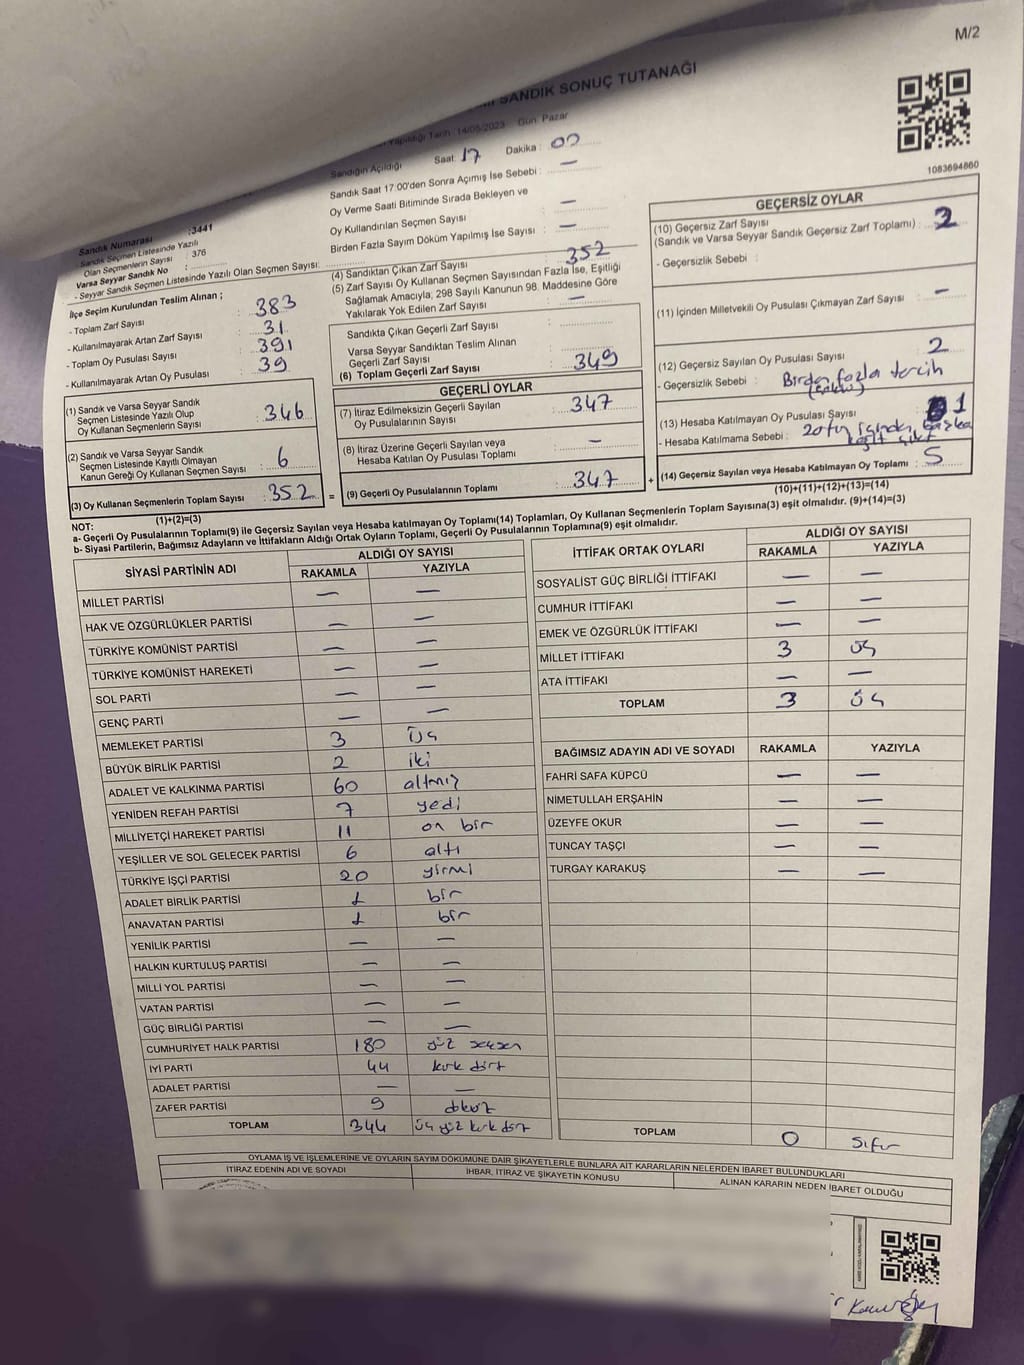 M/2
SANDIK SONUÇ TUTANAĞI
Yapıldığı Tarih: 14/05/2023 Gün: Pazar
Sandığın Açıldığı Saat: 17 Dakika: 00
Sandık Saat 17:00'den Sonra Açımış İse Sebebi : —
Oy Verme Saati Bitiminde Sırada Bekleyen ve
Oy Kullandırılan Seçmen Sayısı : —
Birden Fazla Sayım Döküm Yapılmış İse Sayısı : —
1083694860
Sandık Numarası :3441
Sandık Seçmen Listesinde Yazılı
Olan Seçmenlerin Sayısı : 376
Varsa Seyyar Sandık No :
- Seyyar Sandık Seçmen Listesinde Yazılı Olan Seçmen Sayısı:
İlçe Seçim Kurulundan Teslim Alınan ;
- Toplam Zarf Sayısı : 383
- Kullanılmayarak Artan Zarf Sayısı : 31
- Toplam Oy Pusulası Sayısı : 391
- Kullanılmayarak Artan Oy Pusulası : 39
(1) Sandık ve Varsa Seyyar Sandık
Seçmen Listesinde Yazılı Olup
Oy Kullanan Seçmenlerin Sayısı : 346
(2) Sandık ve Varsa Seyyar Sandık
Seçmen Listesinde Kayıtlı Olmayan
Kanun Gereği Oy Kullanan Seçmen Sayısı : 6
(3) Oy Kullanan Seçmenlerin Toplam Sayısı : 352 =
(1)+(2)=(3)
(4) Sandıktan Çıkan Zarf Sayısı : 352
(5) Zarf Sayısı Oy Kullanan Seçmen Sayısından Fazla İse, Eşitliği
Sağlamak Amacıyla; 298 Sayılı Kanunun 98. Maddesine Göre
Yakılarak Yok Edilen Zarf Sayısı : —
Sandıkta Çıkan Geçerli Zarf Sayısı :
Varsa Seyyar Sandıktan Teslim Alınan
Geçerli Zarf Sayısı :
(6) Toplam Geçerli Zarf Sayısı : 349
GEÇERLİ OYLAR
(7) İtiraz Edilmeksizin Geçerli Sayılan
Oy Pusulalarının Sayısı : 347
(8) İtiraz Üzerine Geçerli Sayılan veya
Hesaba Katılan Oy Pusulası Toplamı : —
(9) Geçerli Oy Pusulalarının Toplamı : 347 +
GEÇERSİZ OYLAR
(10) Geçersiz Zarf Sayısı
(Sandık ve Varsa Seyyar Sandık Geçersiz Zarf Toplamı) :
- Geçersizlik Sebebi :
(11) İçinden Milletvekili Oy Pusulası Çıkmayan Zarf Sayısı : —
(12) Geçersiz Sayılan Oy Pusulası Sayısı : 2
- Geçersizlik Sebebi : Birden fazla tercih
(13) Hesaba Katılmayan Oy Pusulası Sayısı : 1
- Hesaba Katılmama Sebebi : içinden başka
kağıt çıktı
(14) Geçersiz Sayılan veya Hesaba Katılmayan Oy Toplamı : 5
(10)+(11)+(12)+(13)=(14)
NOT:
a- Geçerli Oy Pusulalarının Toplamı(9) ile Geçersiz Sayılan veya Hesaba katılmayan Oy Toplamı(14) Toplamları, Oy Kullanan Seçmenlerin Toplam Sayısına(3) eşit olmalıdır. (9)+(14)=(3)
b- Siyasi Partilerin, Bağımsız Adayların ve İttifakların Aldığı Ortak Oyların Toplamı, Geçerli Oy Pusulalarının Toplamına(9) eşit olmalıdır.
SİYASİ PARTİNİN ADI ALDIĞI OY SAYISI
RAKAMLA YAZIYLA
MİLLET PARTİSİ — —
HAK VE ÖZGÜRLÜKLER PARTİSİ — —
TÜRKİYE KOMÜNİST PARTİSİ — —
TÜRKİYE KOMÜNİST HAREKETİ — —
SOL PARTİ — —
GENÇ PARTİ — —
MEMLEKET PARTİSİ 3 üç
BÜYÜK BİRLİK PARTİSİ 2 iki
ADALET VE KALKINMA PARTİSİ 60 altmış
YENİDEN REFAH PARTİSİ 7 yedi
MİLLİYETÇİ HAREKET PARTİSİ 11 on bir
YEŞİLLER VE SOL GELECEK PARTİSİ 6 altı
TÜRKİYE İŞÇİ PARTİSİ 20 yirmi
ADALET BİRLİK PARTİSİ 1 bir
ANAVATAN PARTİSİ 1 bir
YENİLİK PARTİSİ — —
HALKIN KURTULUŞ PARTİSİ — —
MİLLİ YOL PARTİSİ — —
VATAN PARTİSİ — —
GÜÇ BİRLİĞİ PARTİSİ — —
CUMHURİYET HALK PARTİSİ 180 yüz seksen
İYİ PARTİ 44 kırk dört
ADALET PARTİSİ — —
ZAFER PARTİSİ 9 dokuz
TOPLAM 344 üç yüz kırk dört
İTTİFAK ORTAK OYLARI ALDIĞI OY SAYISI
RAKAMLA YAZIYLA
SOSYALİST GÜÇ BİRLİĞİ İTTİFAKI — —
CUMHUR İTTİFAKI — —
EMEK VE ÖZGÜRLÜK İTTİFAKI — —
MİLLET İTTİFAKI 3 üç
ATA İTTİFAKI — —
TOPLAM 3 üç
BAĞIMSIZ ADAYIN ADI VE SOYADI RAKAMLA YAZIYLA
FAHRİ SAFA KÜPCÜ — —
NİMETULLAH ERŞAHİN — —
ÜZEYFE OKUR — —
TUNCAY TAŞÇI — —
TURGAY KARAKUŞ — —
TOPLAM 0 sıfır
OYLAMA İŞ VE İŞLEMLERİNE VE OYLARIN SAYIM DÖKÜMÜNE DAİR ŞİKAYETLERLE BUNLARA AİT KARARLARIN NELERDEN İBARET BULUNDUKLARI
İTİRAZ EDENİN ADI VE SOYADI İHBAR, İTİRAZ VE ŞİKAYETİN KONUSU ALINAN KARARIN NEDEN İBARET OLDUĞU